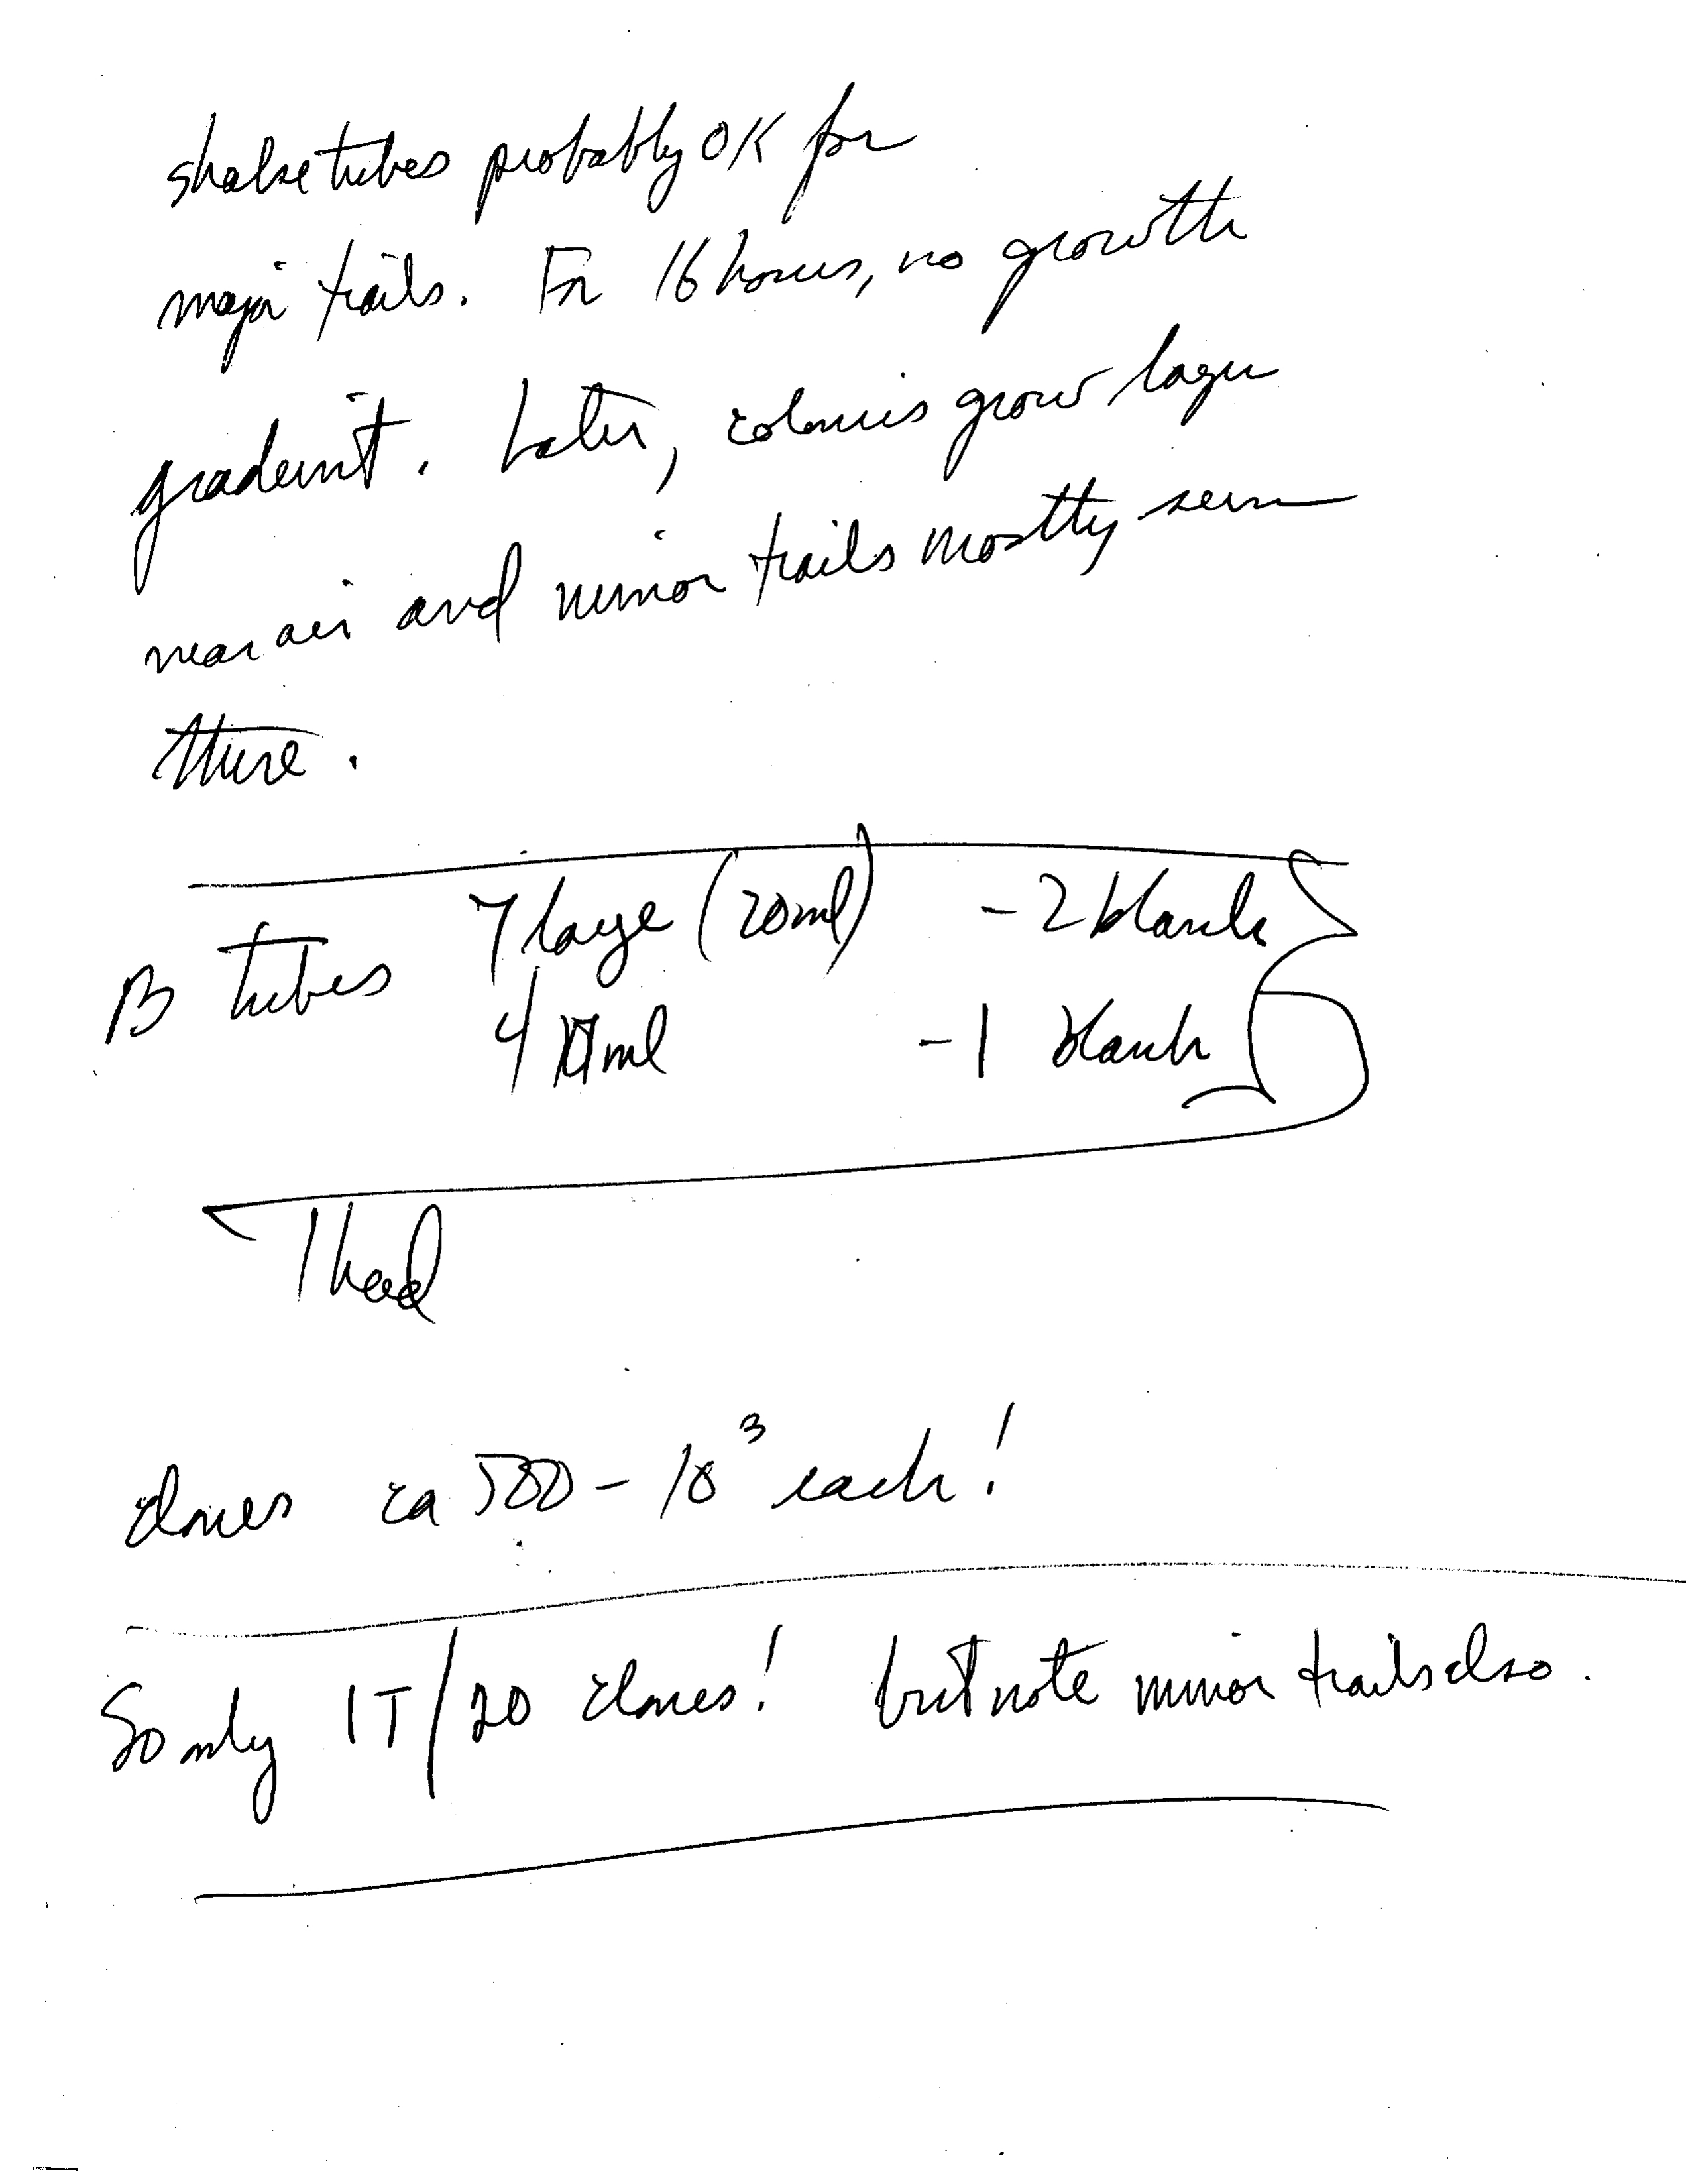 shake tubes probably OK for
major trails. For 16 hours, no growth
gradient. Later, colonies grow larger
near air and minor trails mostly seen
there.
B tubes 7 large (20ml) - 2 blank
4 ml - 1 blank
1 had
clones ca 500 - 10³ each!
So only 1T/20 clones! but note minor trails also.